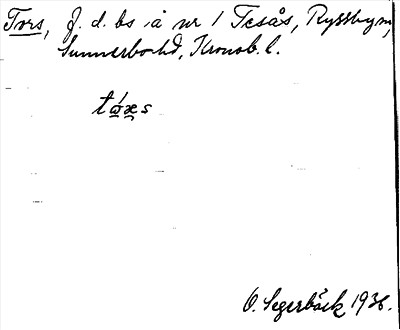 Tors, f. d. bs å nr 1 Tesås, Ryssbyn,
Sunnerbohd, Kronob. l.
O. Segerbäck 1936.